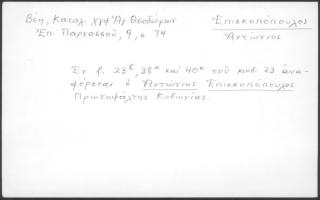 Βέη, Καταλ. Χγφ Ἁγ Θεοδώρων
Ἐπ. Παρνασσοῦ, 9, σ. 74
Ἐπισκοπόπουλος
Ἀντώνιος
Ἐν φ. 23β, 38α καί 40α τοῦ κωδ. 23 ἀνα-
φέρεται ὁ Ἀντώνιος Ἐπισκοπόπουλος
Πρωτοψάλτης Κυδωνίας.